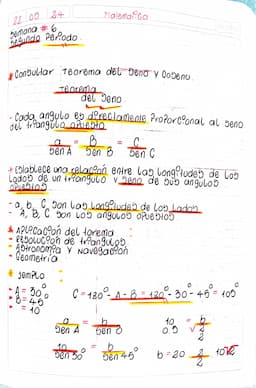 22 05 24 Matematica
Semana # 6
Segundo Periodo.
* Consultar Teorema del Seno y Coseno.
Teorema
del Seno
- Cada angulo es directamente Proporcional al seno
del triangulo opuesto
a/Sen A = B/Sen B = C/Sen C
* Establece una relacion entre las longitudes de los
lados de un triangulo y Seno de sus angulos
opuestos
- a, b, C Son las longitudes de los lados
- A, B, C Son los angulos opuestos
* Aplicacion del torema
- Resolucion de triangulos
- Astronomia y Navegacion
- Geometria
* Jemplo
- A = 30° C = 180° - A - B = 180° - 30° - 45° = 105°
- B = 45°
- = 10
a/Sen A = b/Sen B
10/0.5 = b/
10/Sen 30° = b/Sen 45° b = 20